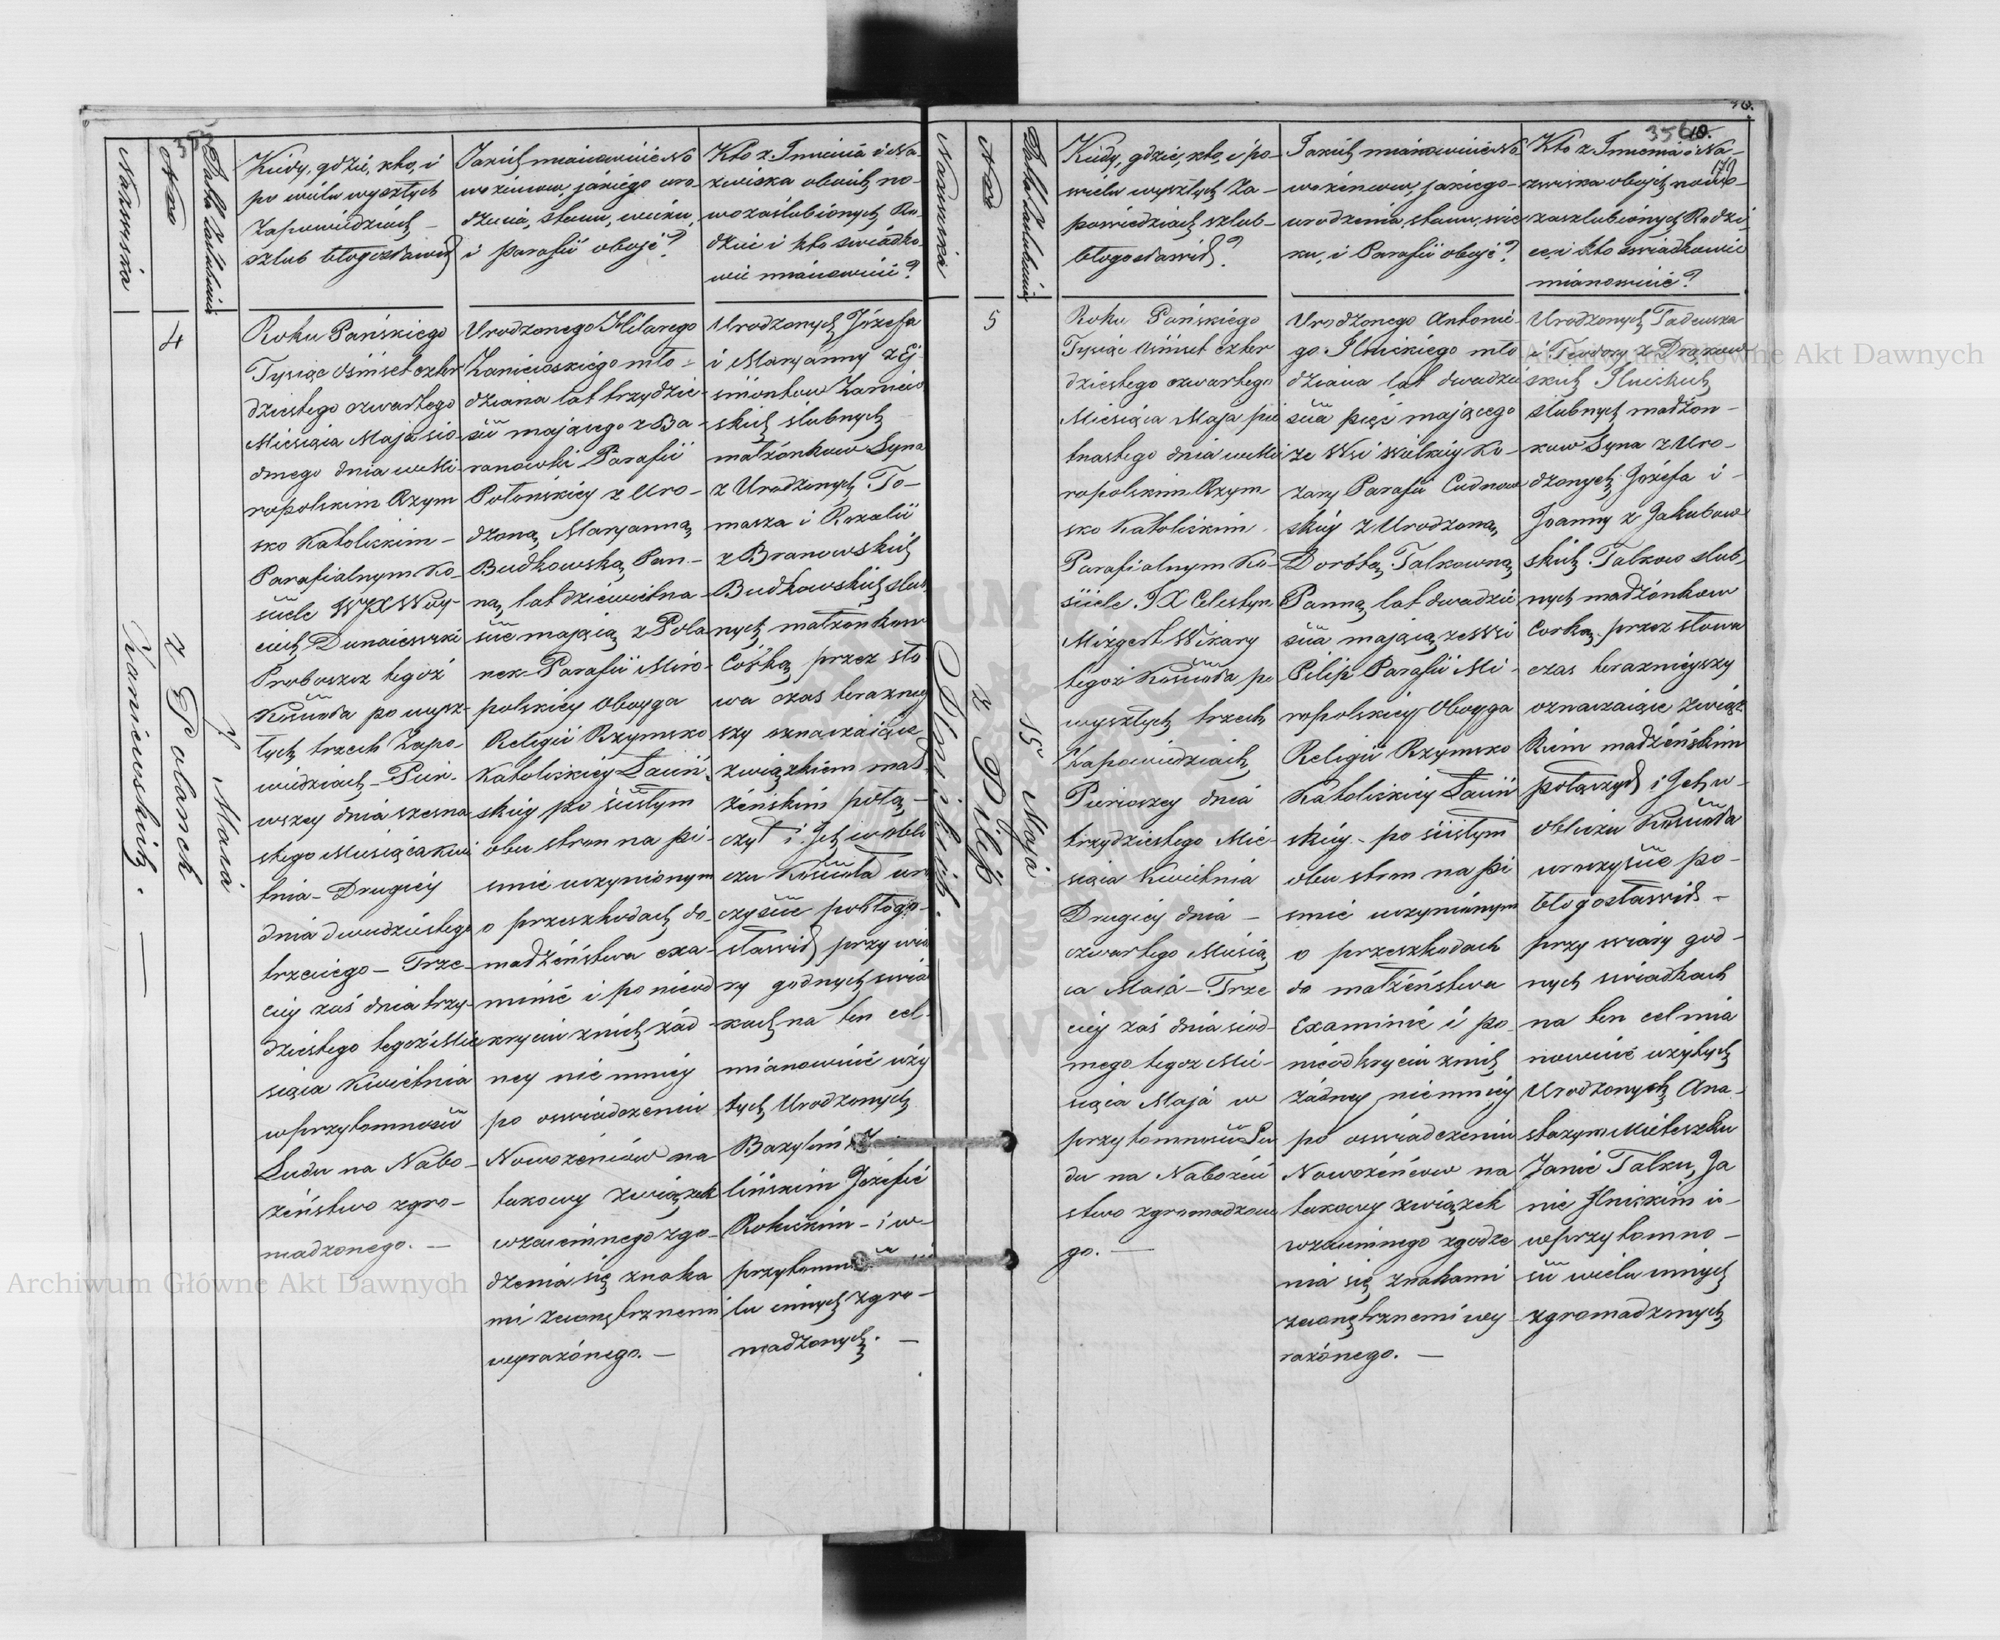 355
Nazwiska
Nro
Data Zaślubin
Kiedy, gdzie, kto, i
po wielu wyszłych
Zapowiedziach
szlub błogosławił
Jakich mianowicie No
wożencow, jakiego uro
dzenia, stanu, wieku,
i parafii oboje?
Kto z Imienia i Na-
zwiska obojch no-
wozaślubionych Ro-
dzice i kto swiadko-
wie mianowicie?
4
z Polanek
7 Maia
Zaniewskich.
Roku Pańskiego
Tysiąc ośmset czter
dziestego czwartego
Miesiąca Maja sio-
dmego dnia w Mi
ropolskim Rzym
sko Katolickim -
Parafialnym Ko-
ściele WJX Woy-
ciech Dunaiewski
Proboszcz tegoż
Kościoła po wysz-
łych trzech Zapo-
wiedziach - Pier-
wszey dnia szesna
stego Miesiąca Kwie
tnia - Drugiey
dnia dwudziestego
trzeciego - Trze-
ciey zaś dnia trzy-
dziestego tegoż Mie
siąca Kwietnia
w przytomności
Ludu na Nabo-
żeństwo zgro-
madzonego. -
Urodzonego Hilarego
Zaniewskiego mło-
dziana lat trzydzie-
ści mającego z Ba-
ranowki Parafii
Połońskiey z Uro-
dzoną Maryanną
Budkowską Pan-
ną, lat dziewietna-
ście mającą z Pola
nek Parafii Miro-
polskiey Oboyga
Religii Rzymsko
Katolickiey Łaciń-
skiey po ścisłym
obu stron na pi-
smie uczynionym
o przeszkodach do
madżeństwa exa-
minie i po nieod
kryciu znich żad
ney nie mniey
po oswiadczeniu
Nowożeniow na
takowy związek
wzaiemnego zgo-
dzenia się znaka
mi zewnętrznemi
wyrażonego. -
Urodzonych Józefa
i Maryanny z Ej-
smontow Zaniew
skich ślubnych
małżonkow Syna
z Urodzonych To-
masza i Rozalii
z Branowskich
Budkowskich slub
nych małżonkow
Córką, przez sło
wa czas teraźniey
szy oznaczaiące
związkiem mał
żeńskim połą-
czył i Ich w obli
czu Kościoła uro
czyście pobłogo-
sławił przy wia
ry godnych swia
kach na ten cel
mianowicie uży
tych Urodzonych
Bazylim
lińskim Józefie
Rokickim - i w
przytomno
lu innych zgro-
madzonych. -
10.
356
Nazwiska
Nro
Data Zaślubin
Kiedy, gdzie, kto, i po-
wielu wyszłych Za-
powiedziach szlub-
błogosławił?
Jakich mianowicie No
wożencow, jakiego-
urodzenia, stanu, wie
ku, i Parafii oboje?
Kto z Imienia i Na-
zwiska obojch nowo-
zaszlubionych Rodzi
ce, i kto swiadkowie
mianowicie?
5
z Pilip
15 Maja
Ilnickich.
Roku Pańskiego
Tysiąc ośmset czter
dziestego czwartego
Miesiąca Maja pie
tnastego dnia w Mi
ropolskim Rzym
sko Katolickim
Parafialnym Ko-
ściele JX Celestyn
Mirgert Wikary
tegoż Kościoła po
wyszłych trzech
Zapowiedziach
Pierwszey dnia
trzydziestego Mie-
siąca Kwietnia
Drugiey dnia -
czwartego Miesią
ca Maia - Trze
ciey zaś dnia siod-
mego tegoż Mie-
siąca Maja w
przytomności Lu
du na Nabożeń
stwo zgromadzone
go. -
Urodzonego Antonie-
go Ilnickiego mło
dziana lat dwadzie
ścia pięć mającego
ze Wsi Wielkiey Ko-
zary Parafii Cudnow
skiey z Urodzoną
Dorotą Talkowną
Panną lat dwadzie
ścia mającą ze Wsi
Pilip Parafii Mi-
ropolskiey Oboyga
Religii Rzymsko
Katolickiey Łaciń
skiey - po ścisłym
obu stron na pi
smie uczynionym
o przeszkodach
do małżeństwa
Examinie i po-
nieodkryciu znich
żadney niemniey
po oswiadczeniu
Nowożeńcow na
takowy związek
wzaiemnego zgodze
nia się znakami
zewnętrznemi wy-
rażonego. -
Urodzonych Tadeusza
i Teodory z
skich Ilnickich
ślubnych madżon-
kow Syna z Uro-
dzonych Józefa i -
Joanny z Jakubow-
skich Talkow slub-
nych madżonkow
Corką przez słowa
czas teraznieyszy
oznaczaiące związ
kiem madżeńskim
połączył i Ich w-
obliczu Kościoła
uroczyście po-
błogosławił -
przy wiary god-
nych swiadkach
na ten cel mia
nowicie użytych
Urodzonych Ana-
stazym Mieleszku
Janie Talku, Ja
nie Ilnickim i -
w przytomno-
ści wielu innych
zgromadzonych
Archiwum Główne Akt Dawnych
Archiwum Główne Akt Dawnych